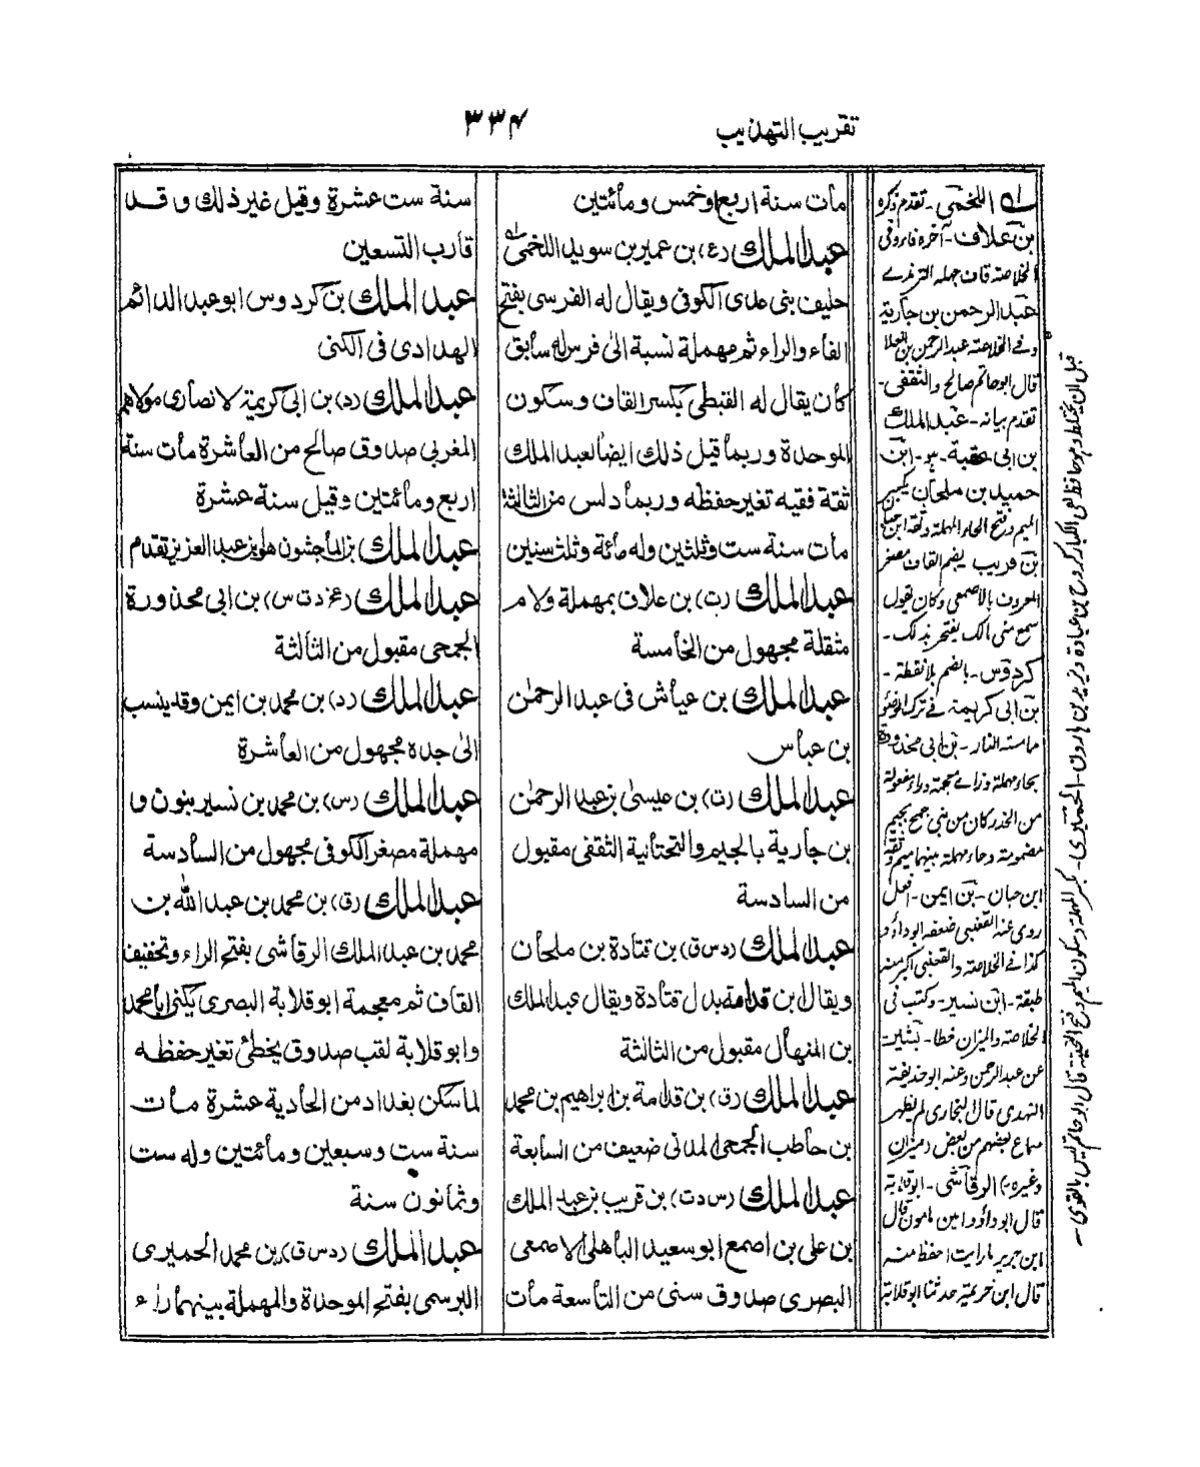 تقريب التهذيب
٣٣٤
مات سنة اربع او خمس ومائتين
عبد الملك (ع) بن عمير بن سويد اللخمى
حليف بنى عدى الكوفى ويقال له الفرسى بفتح
الفاء والراء ثم مهملة نسبة الى فرس له سابق
كان يقال له القبطى بكسر القاف وسكون
الموحدة وربما قيل ذلك ايضا لعبد الملك
ثقة فقيه تغير حفظه وربما دلس من الثالثة
مات سنة ست وثلثين وله مائة وثلث سنين
عبد الملك (ت) بن علاق بمهملة ولام
مثقلة مجهول من الخامسة
عبد الملك بن عياش فى عبد الرحمن
بن عباس
عبد الملك (ت) بن عيسى بن عبد الرحمن
بن جارية بالجيم والتحتانية الثقفى مقبول
من السادسة
عبد الملك (د س ق) بن قتادة بن ملحان
ويقال ابن قدامة بدل قتادة ويقال عبد الملك
بن المنهال مقبول من الثالثة
عبد الملك (ق) بن قدامة بن ابراهيم بن محمد
بن حاطب الجمحى المدنى ضعيف من السابعة
عبد الملك (س د ت) بن قريب بن عبد الملك
بن على بن اصمع ابو سعيد الباهلى الاصمعى
البصرى صدوق سنى من التاسعة مات
سنة ست عشرة وقيل غير ذلك وقد
قارب التسعين
عبد الملك بن كردوس ابو عبد الدائم
الهدادى فى الكنى
عبد الملك (د) بن ابى كريمة لانصارى مولاهم
المغربى صدوق صالح من العاشرة مات سنة
اربع ومائتين وقيل سنة عشرة
عبد الملك بن الماجشون هو بن عبد العزيز تقدم
عبد الملك (عخ د ت س) بن ابى محذورة
الجمحى مقبول من الثالثة
عبد الملك (د) بن محمد بن ايمن وقد ينسب
الى جده مجهول من العاشرة
عبد الملك (س) بن محمد بن نسير بنون و
مهملة مصغر الكوفى مجهول من السادسة
عبد الملك (ق) بن محمد بن عبد الله بن
محمد بن عبد الملك الرقاشى بفتح الراء وتخفيف
القاف ثم معجمة ابو قلابة البصرى يكنى ابا محمد
وابو قلابة لقب صدوق يخطئ تغير حفظه
لما سكن بغداد من الحادية عشرة مات
سنة ست وسبعين ومائتين وله ست
وثمانون سنة
عبد الملك (د س ق) بن محمد الحميرى
البرسمى بفتح الموحدة والمهملة بينهما راء
له اللخمى - تقدم ذكره
بن علاق - آخره قاف وفى
الخلاصة قاف جهله الترمذى
عبد الرحمن بن جارية
وفى الخلاصة عبد الرحمن بن العلا
قال ابو حاتم صالح والثقفى -
تقدم بيانه - عبد الملك
بن ابى عقبة - هو - ابن
حميد بن ملحان بكسر
الميم وفتح الحاء المهملة وثقه ابن حبان
بن قريب بضم القاف مصغر
المعروف بالاصمعى وكان يقول
سمع منى مالك يفتخر بذلك -
كردوس - بالضم بلا نقطة -
بن ابى كريمة فى ترك الوضوء
مامسته النار - بن ابى محذورة
بحاء مهملة وذال معجمة وراء
من الخدر كان من بنى جمح بجيم
مضمومة وحاء مهملة بينهما ميم وثقه
ابن حبان - بن ايمن -
روى عنه القعنبى ضعفه ابو داؤد
كذا فى الخلاصة والقعنبى اكبر منه
طبقة - ابن نسير - وكتب فى
الخلاصة والميزان خطا - بشير -
عن عبد الرحمن وعنه ابو حذيفة
النهدى قال البخارى لم يظهر
سماع بعضهم من بعض (ميزان
وغيره) الرقاشى - ابو قلابة
قال ابو داؤد امين مامون قال
ابن جرير ما رايت احفظ منه
قال ابن خزيمة حدثنا ابو قلابة
قبل ان يختلط - الحميرى - بكسر المهملة وسكون الميم وفتح التحتية قال ابو حاتم ليس بالقوى -